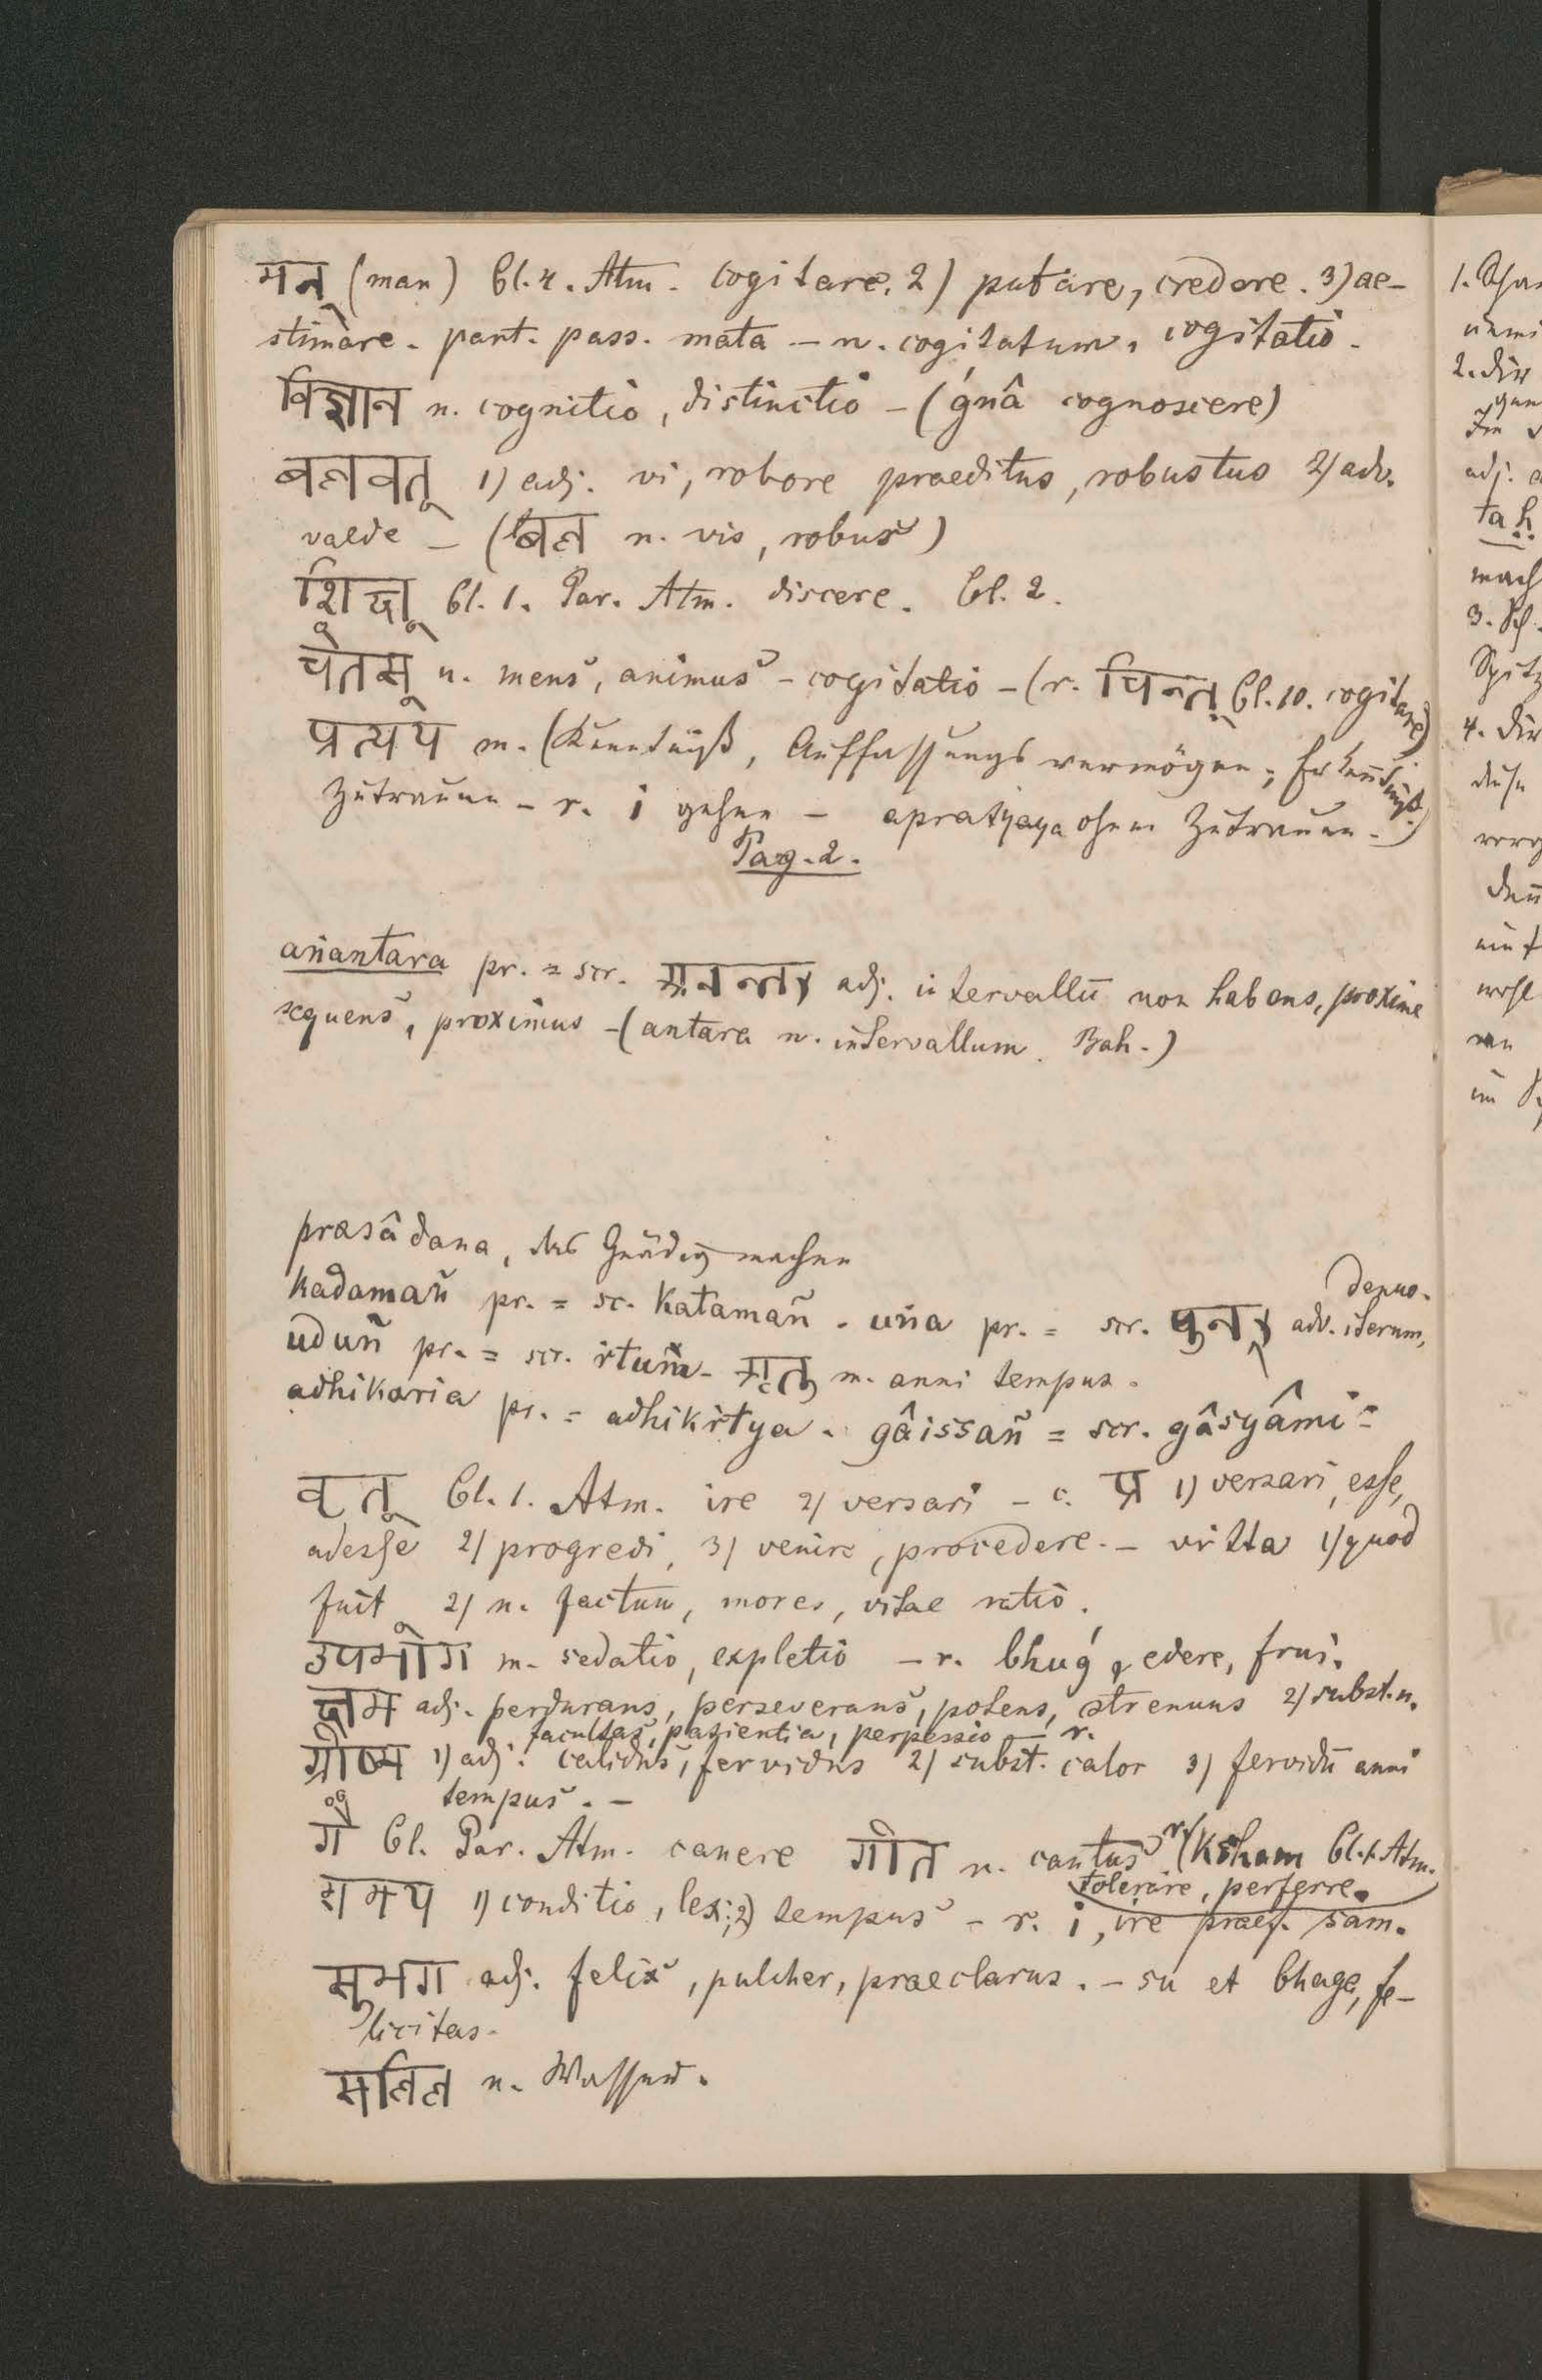 मन् (man) Cl. 4. Atm. cogitare. 2) putare, credere. 3) ae-
stimare. part. pass. mata — n. cogitatum, cogitatio.
विज्ञान n. cognitio, distinctio — (ǵnâ cognoscere)
बलवत् 1) adj. vi, robore praeditus, robustus 2) adv.
valde — (बल n. vis, robur)
शिक्ष् Cl. 1. Par. Atm. discere. Cl. 2.
चेतस् n. mens, animus — cogitatio — (r. चिन्त् Cl. 10. cogitare)
प्रत्यय m. (Kenntniß, Auffassungsvermögen; Erkenntniß.
Zutrauen — r. i gehen — apratyaya ohne Zutrauen.)
Pag. 2.
anantara pr. = scr. अनन्तर adj. intervallū non habens, proxime
sequens, proximus — (antara n. intervallum. Bah.)
prasâdana, das Gnädig machen
kadamañ pr. = sc. katamañ. uña pr. = scr. पुनर् adv. iterum, denuo.
uduñ pr. = scr. ritum. ऋतु m. anni tempus.
adhikaria pr. = adhikritya. gâissañ = scr. gâsyâmi
वृत् Cl. 1. Atm. ire 2) versari — c. प्र 1) versari, esse,
adesse 2) progredi, 3) venire, procedere. — vritta 1) quod
fuit 2) n. factum, mores, vitae ratio.
उपभोग m. sedatio, expletio — r. bhuǵ, edere, frui.
क्षम adj. perdurans, perseverans, potens, strenuus 2) subst. n.
facultas, patientia, perpessio — r.
ग्रीष्म 1) adj. calidus, fervidus 2) subst. calor 3) fervidū anni
tempus. —
गै Cl. Par. Atm. canere गीत n. cantus r. (ksham Cl. 1. Atm.
tolerare, perferre.
समय 1) conditio, lex; 2) tempus — r. i, ire praef. sam.
सुभग adj. felix, pulcher, praeclarus. — su et bhaga, fe-
licitas.
सलिल n. Wasser.